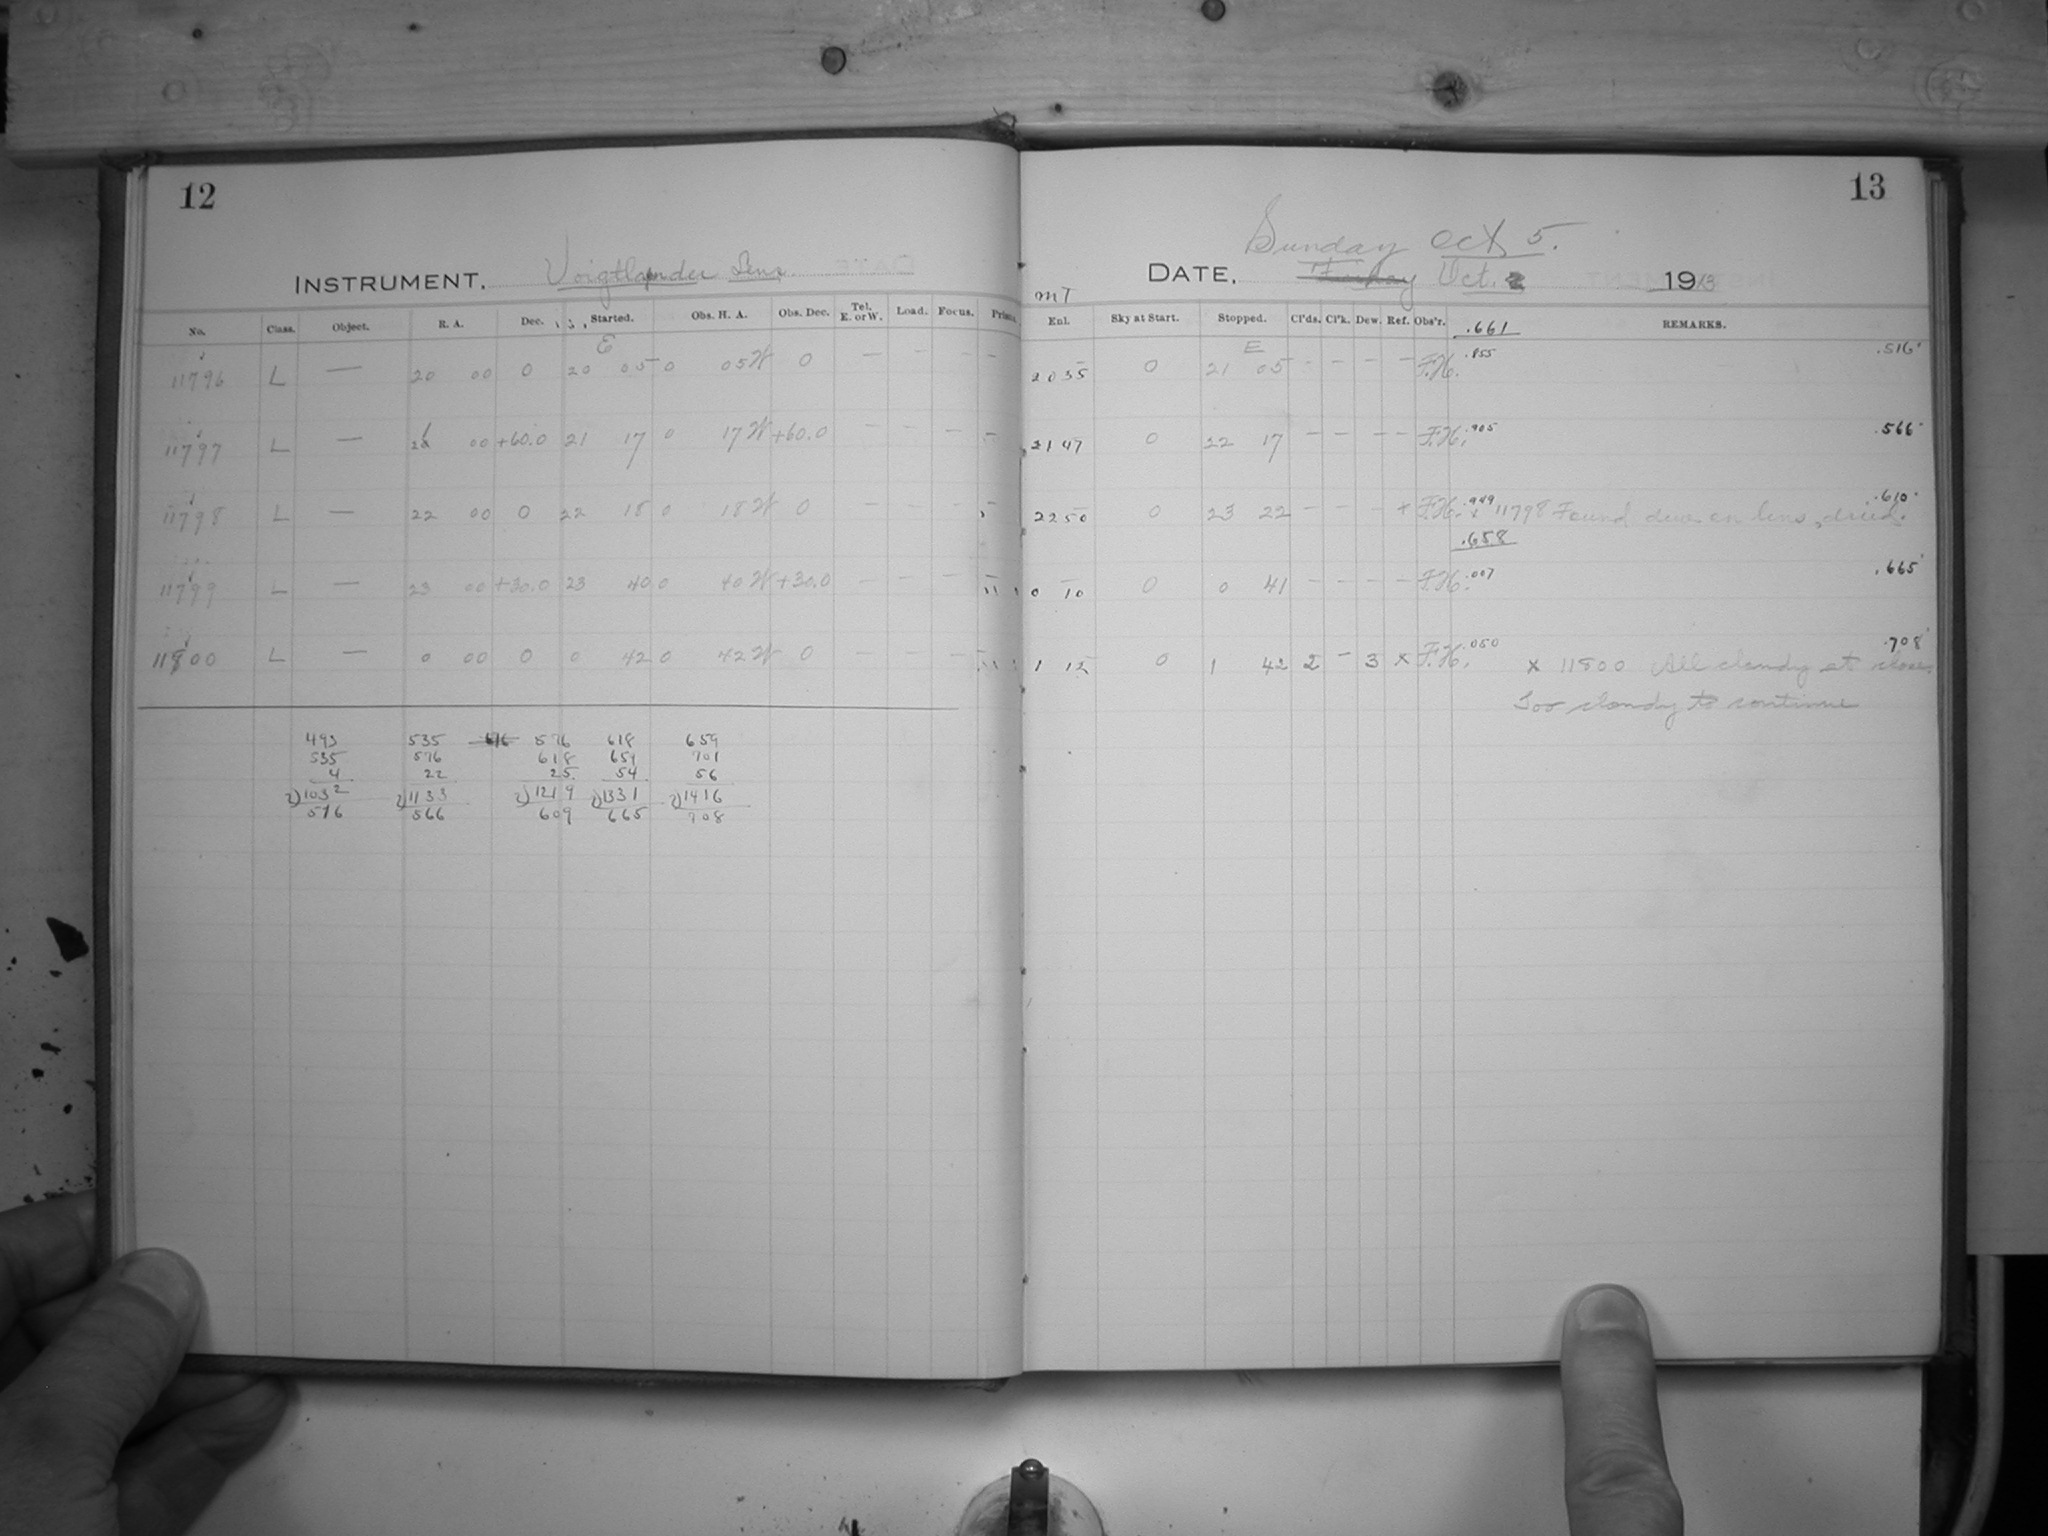 12
INSTRUMENT. Voigtlander Lens
No. Class. Object. R. A. Dec. Started. Obs. H. A. Obs. Dec. Tel. E. or W. Load. Focus. Prism.
E
11796 L — 20 00 0 20 05 0 05 W 0 — — — —
11797 L — 00 +60.0 21 17 0 17 W +60.0 — — — —
11798 L — 22 00 0 22 18 0 18 W 0 — — — —
11799 L — 23 00 +30.0 23 40 0 40 W +30.0 — — — —
11800 L — 0 00 0 0 42 0 42 W 0 — — — —
493 535 616 576 618 659
535 576 618 659 701
4 22 25 54 56
2)1032 2)1133 2)1219 2)1331 2)1416
516 566 609 665 708
13
Sunday Oct 5.
DATE, Oct. 1913
MT
Enl. Sky at Start. Stopped. Cl'ds. Cl'k. Dew. Ref. Obs'r. .661 REMARKS.
E
20 35 0 21 05 — — — — F.H. .855 .516
21 47 0 22 17 — — — — F.H. .905 .566
22 50 0 23 22 — — — x F.H. .949 x 11798 Found dew on lens, dried. .610
.658
0 10 0 0 41 — — — — F.H. .007 .665
1 12 0 1 42 2 — 3 x F.H. .050 x 11800 All cloudy at close. .708
Too cloudy to continue